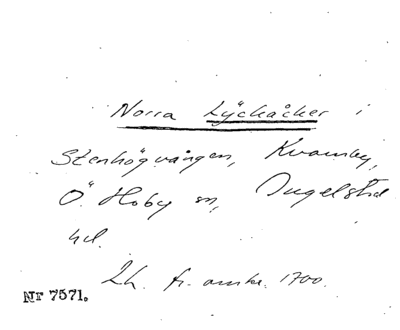 Norra Lÿckåcker i
Stenhögvången, Kvarnby,
Ö. Hoby sn, Ingelstad
hd.
Lh. fr. omkr. 1700.
Nr 7571.